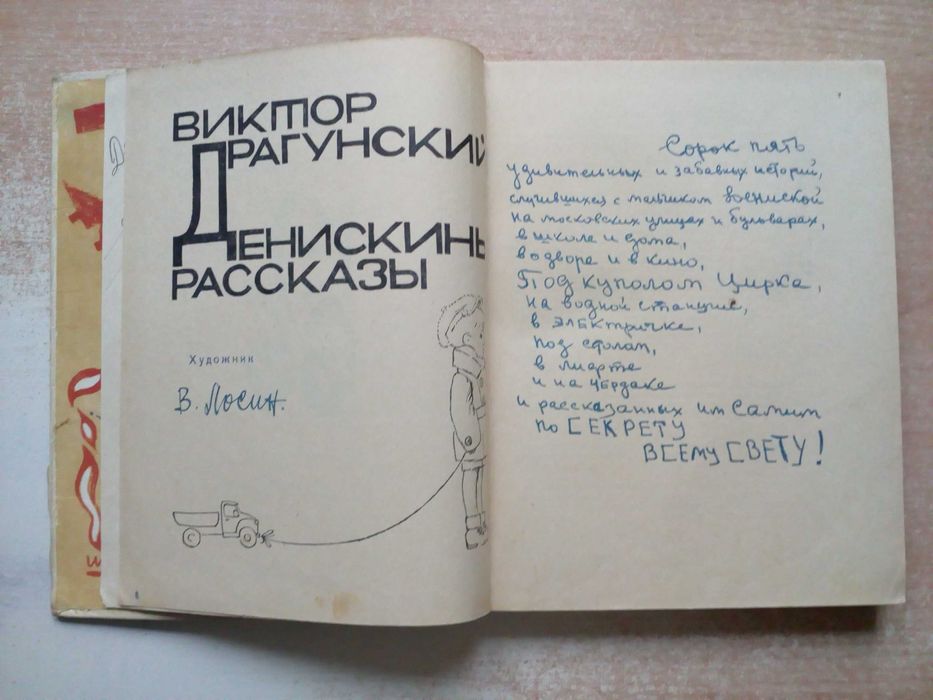 ВИКТОР
ДРАГУНСКИЙ
ДЕНИСКИНЫ
РАССКАЗЫ
Художник
В. Лосин.
Сорок пять
удивительных и забавных историй,
случившихся с мальчиком Дениской
на московских улицах и бульварах,
в школе и дома,
во дворе и в кино,
под куполом цирка,
на водной станции,
в электричке,
под столом,
в лифте
и на чердаке
и рассказанных им самим
по СЕКРЕТУ
ВСЕМУ СВЕТУ!